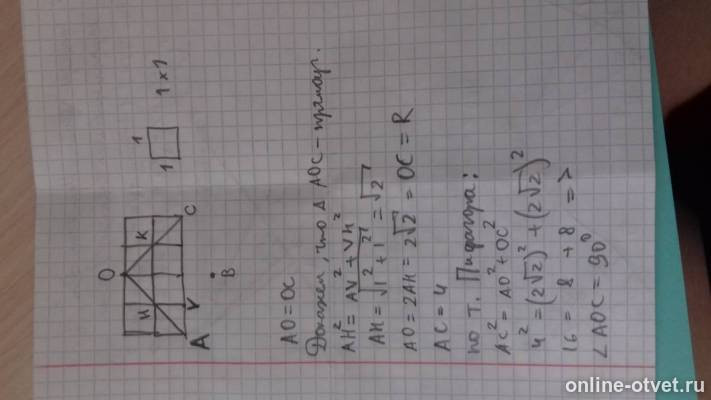 O
1
1
1×1
H
K
A
V
C
B
AO = OC
Докажем, что Δ AOC – прямоуг.
AH² = AV² + VH²
AH = √1² + 1² = √2
AO = 2AH = 2√2 = OC = R
AC = 4
по т. Пифагора:
AC² = AO² + OC²
4² = (2√2)² + (2√2)²
16 = 8 + 8 =>
∠AOC = 90°
online-otvet.ru